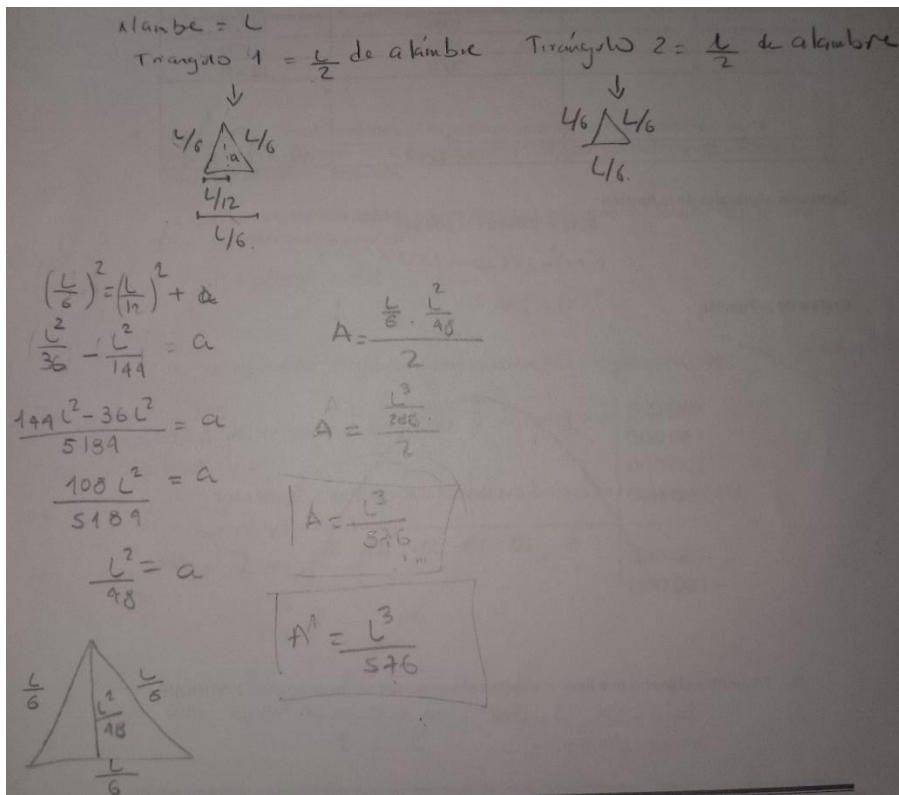 Alambe = L
Triangulo 1 = L/2 de alámbre
Tirángulo 2 = L/2 de alambre
L/6 L/6
a
L/12
L/6.
L/6 L/6
L/6.
(L/6)² = (L/12)² + a
L²/36 - L²/144 = a
(144L² - 36L²)/5184 = a
108 L²/5184 = a
L²/48 = a
L/6 L/6
L²/48
L/6
A = (L/6 · L²/48)/2
A = (L³/288)/2
A = L³/576
A¹ = L³/576